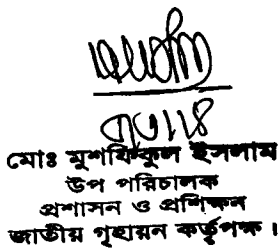 মোঃ মুশফিকুল ইসলাম
উপ পরিচালক
প্রশাসন ও প্রশিক্ষন
জাতীয় গৃহায়ন কর্তৃপক্ষ।